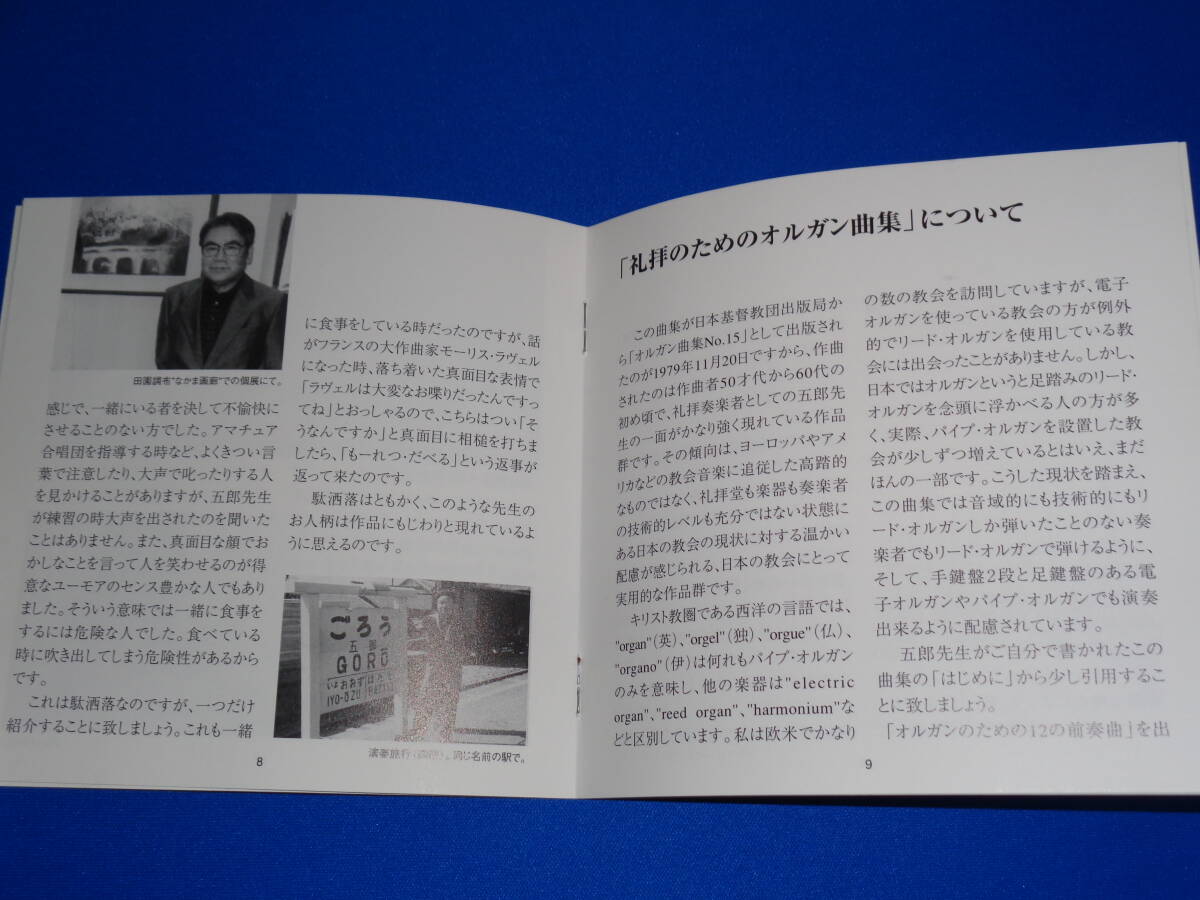 田園調布"なかま画廊"での個展にて。
感じで、一緒にいる者を決して不愉快に
させることのない方でした。アマチュア
合唱団を指導する時など、よくきつい言
葉で注意したり、大声で叱ったりする人
を見かけることがありますが、五郎先生
が練習の時大声を出されたのを聞いた
ことはありません。また、真面目な顔でお
かしなことを言って人を笑わせるのが得
意なユーモアのセンス豊かな人でもあり
ました。そういう意味では一緒に食事を
するには危険な人でした。食べている
時に吹き出してしまう危険性があるから
です。
これは駄洒落なのですが、一つだけ
紹介することに致しましょう。これも一緒
に食事をしている時だったのですが、話
がフランスの大作曲家モーリス・ラヴェル
になった時、落ち着いた真面目な表情で
「ラヴェルは大変なお喋りだったんですっ
てね」とおっしゃるので、こちらはつい「そ
うなんですか」と真面目に相槌を打ちま
したら、「もーれつ・だべる」という返事が
返って来たのです。
駄洒落はともかく、このような先生の
お人柄は作品にもじわりと現れているよ
うに思えるのです。
ごろう
五郎
GORŌ
いよおおず
IYO-ŌZU
演奏旅行 。同じ名前の駅で。
8
「礼拝のためのオルガン曲集」について
この曲集が日本基督教団出版局か
ら「オルガン曲集No.15」として出版され
たのが1979年11月20日ですから、作曲
されたのは作曲者50才代から60代の
初め頃で、礼拝奏楽者としての五郎先
生の一面がかなり強く現れている作品
群です。その傾向は、ヨーロッパやアメ
リカなどの教会音楽に追従した高踏的
なものではなく、礼拝堂も楽器も奏楽者
の技術的レベルも充分ではない状態に
ある日本の教会の現状に対する温かい
配慮が感じられる、日本の教会にとって
実用的な作品群です。
キリスト教圏である西洋の言語では、
"organ"(英)、"orgel"(独)、"orgue"(仏)、
"organo"(伊)は何れもパイプ・オルガン
のみを意味し、他の楽器は"electric
organ"、"reed organ"、"harmonium"な
どと区別しています。私は欧米でかなり
の数の教会を訪問していますが、電子
オルガンを使っている教会の方が例外
的でリード・オルガンを使用している教
会には出会ったことがありません。しかし、
日本ではオルガンというと足踏みのリード・
オルガンを念頭に浮かべる人の方が多
く、実際、パイプ・オルガンを設置した教
会が少しずつ増えているとはいえ、まだ
ほんの一部です。こうした現状を踏まえ、
この曲集では音域的にも技術的にもリ
ード・オルガンしか弾いたことのない奏
楽者でもリード・オルガンで弾けるように、
そして、手鍵盤2段と足鍵盤のある電
子オルガンやパイプ・オルガンでも演奏
出来るように配慮されています。
五郎先生がご自分で書かれたこの
曲集の「はじめに」から少し引用するこ
とに致しましょう。
「オルガンのための12の前奏曲」を出
9